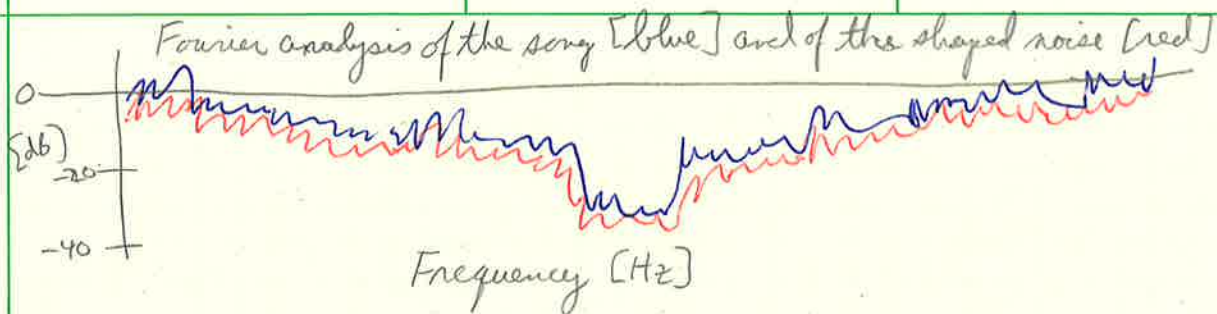 Fourier analysis of the song [blue] and of the shaped noise [red]
0
[db]
-20
-40
Frequency [Hz]